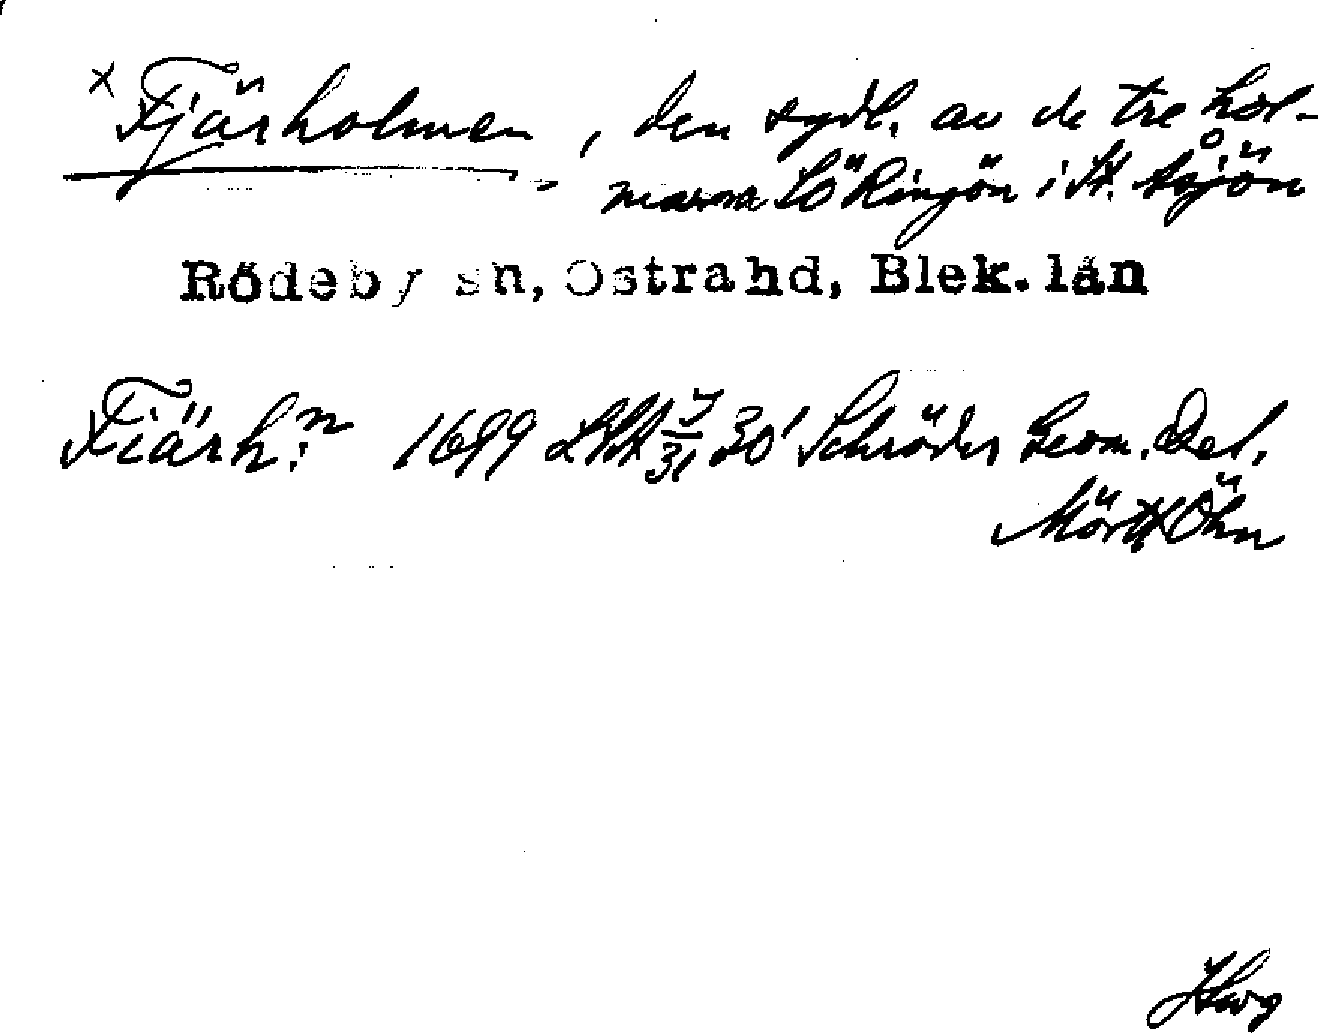 x Fjärholmen, den sydl. av de tre hol-
marna SÖ Ringön i St. Åsjön
Rödeby sn, Östra hd, Blek. län
Fiärh:n 1699 30' Schröder Geom. Del.
Öhn